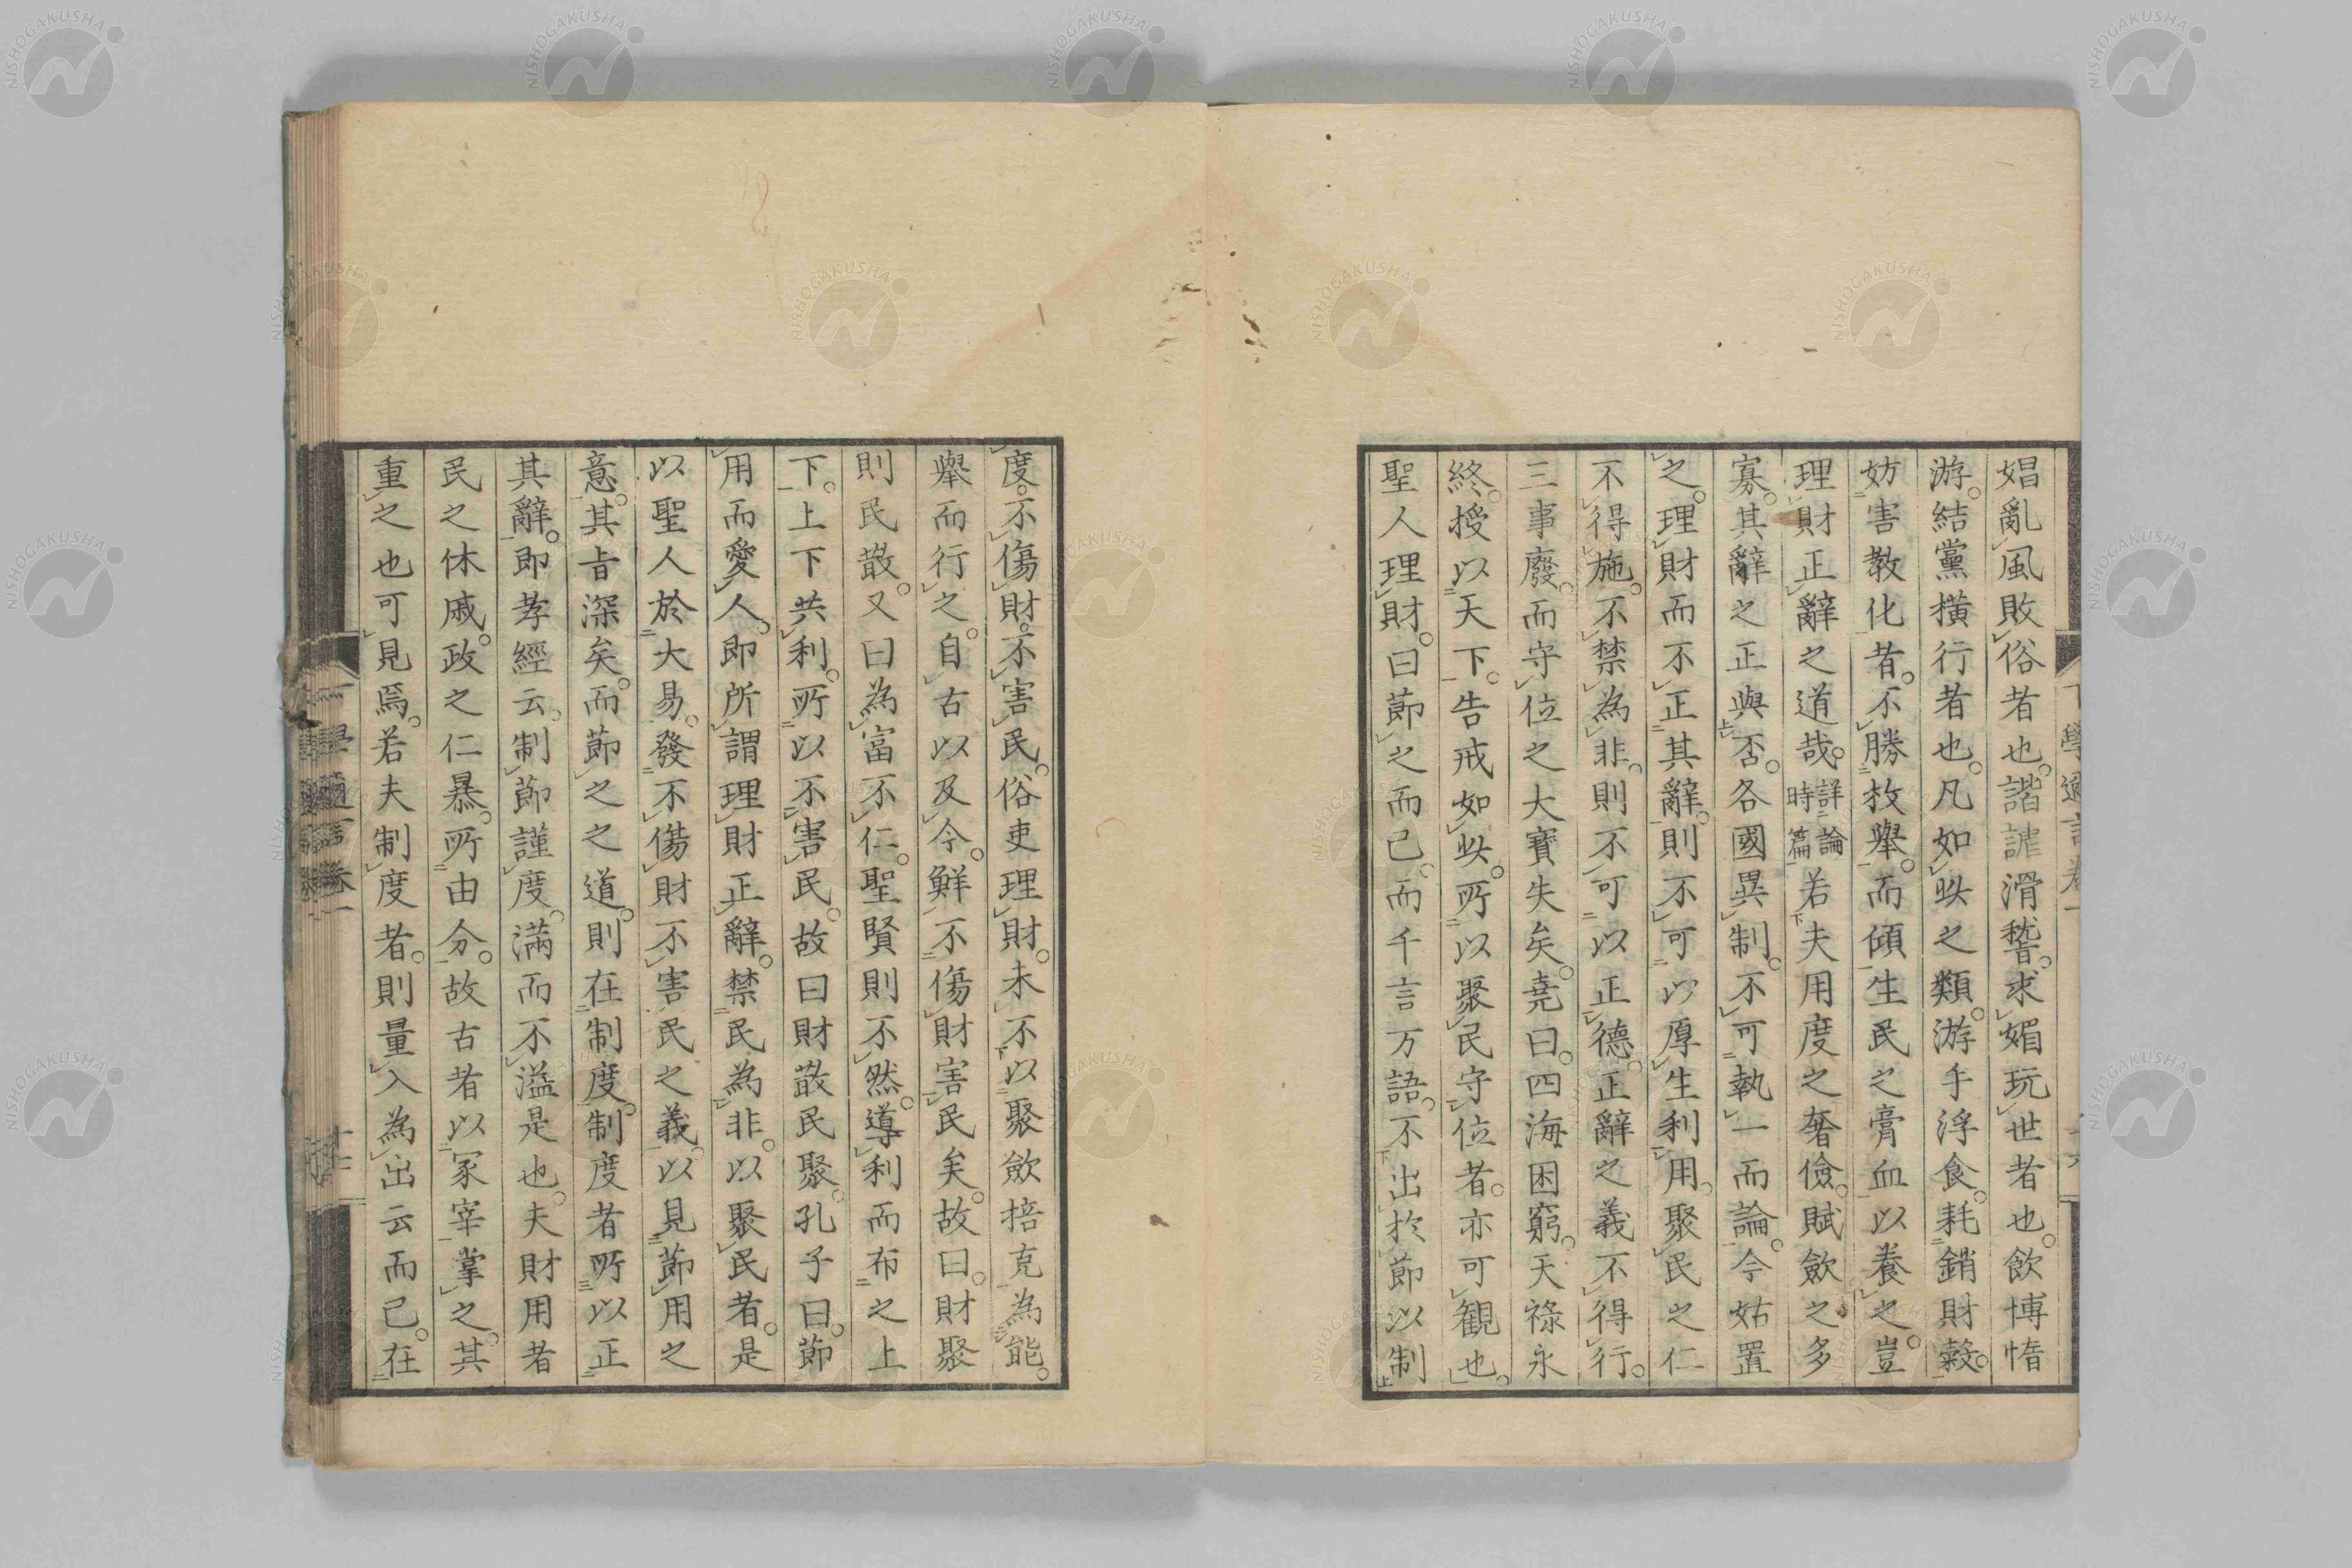 娼亂風敗俗者也。諧謔滑稽。求媚玩世者也。飲博惰
游。結黨横行者也。凡如此之類。游手浮食。耗銷財穀。
妨害教化者。不勝枚舉。而傾生民之膏血以養之。豈
理財正辭之道哉。詳論時篇若夫用度之奢儉。賦斂之多
寡。其辭之正與否。各國異制。不可執一而論。今姑置
之。理財而不正其辭。則不可以厚生利用。聚民之仁
不得施。不禁為非。則不可以正德。正辭之義不得行。
三事廢。而守位之大寶失矣。堯曰。四海困窮。天祿永
終。授以天下。告戒如此。所以聚民守位者。亦可観也。
聖人理財。曰節之而已。而千言万語。不出於節以制
度。不傷財。不害民。俗吏理財。未不以聚斂掊克為能。
舉而行之。自古以及今。鮮不傷財害民矣。故曰。財聚
則民散。又曰為富不仁。聖賢則不然。導利而布之上
下。上下共利。所以不害民。故曰財散民聚。孔子曰。節
用而愛人。即所謂理財正辭。禁民為非。以聚民者。是
以聖人於大易。發不傷財不害民之義。以見節用之
意。其旨深矣。而節之之道。則在制度。制度者所以正
其辭。即孝經云。制節謹度。満而不溢是也。夫財用者
民之休戚。政之仁暴。所由分。故古者以冢宰掌之。其
重之也可見焉。若夫制度者。則量入為出云而已。在
下學邇言卷一
NISHOGAKUSHA